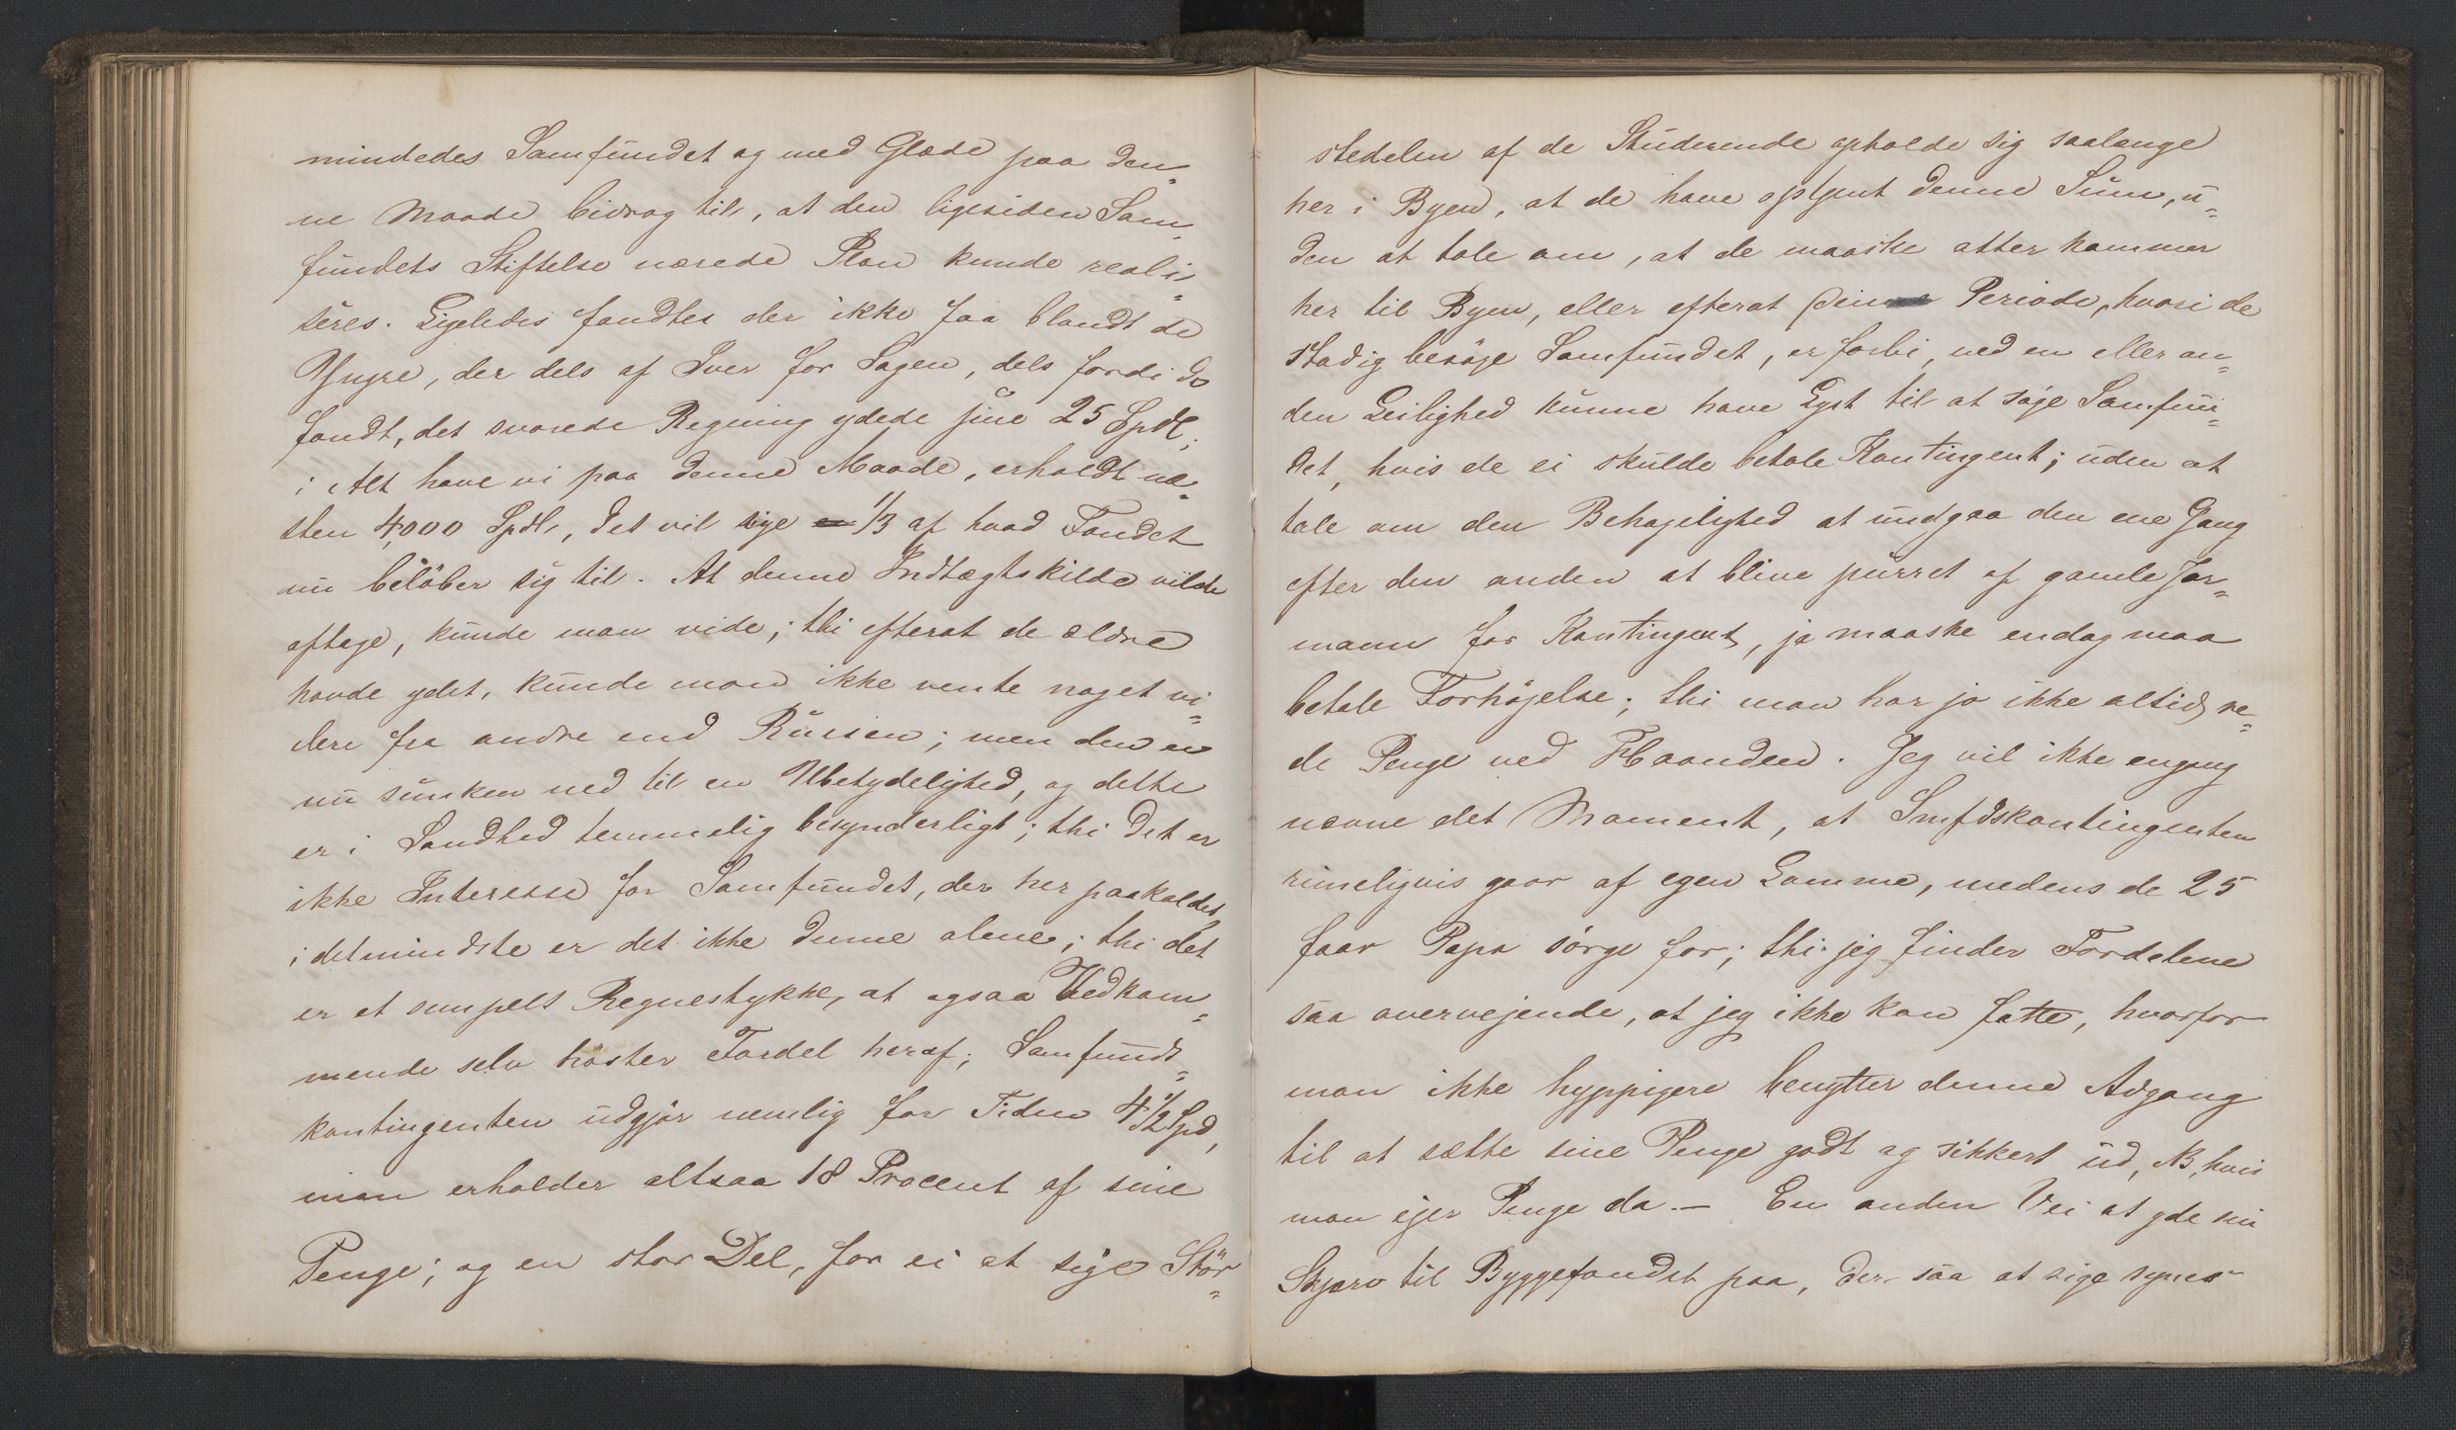 mindedes Samfundet og med Glæde paa den=
ne Maade bidrog til, at den ligesiden Sam=
fundets Stiftelse nærede Plan kunde reali=
seres. Ligeledes fandtes der ikke faa blandt de
Yngre, der dels af Iver for Sagen, dels fordi de
fandt, det svarede Regning ydede sine 25 Spdl;
i Alt have vi paa denne Maade, erholdt næ=
sten 4,000 Spdl, det vil sige 1/3 af hvad Fondet
nu beløber sig til. At denne Indtægtskilde vilde
aftage, kunde man vide; thi efterat de ældre
havde ydet, kunde man ikke vente noget vi=
dere fra andre end Russen; men den er
nu sunken ned til en Ubetydelighed, og dette
er i Sandhed temmelig besynderligt; thi det er
ikke Interesse for Samfundet, der her paakaldes,
i detmindste er det ikke denne alene; thi det
er et simpelt Regnestykke, at ogsaa Vedkom=
mende selv høster Fordel heraf; Samfunds=
kontingenten udgjør nemlig for Tiden 4 1/2 Spd,
man erholder altsaa 18 Procent af sine
Penge; og en stor Del, for ei at sige Stør=
stedelen af de Studerende opholde sig saalænge
her i Byen, at de have optjent denne Sum, u=
den at tale om, at de maaske atter kommer
her til Byen, eller efterat Periode, hvori de
stadig besøge Samfundet, er forbi, ved en eller an=
den Leilighed kunne have Lyst til at søge Samfun=
det, hvis de ei skulde betale Kontingent; uden at
tale om den Behagelighed at undgaa den ene Gang
efter den anden at blive purret af gamle For=
mænn for Kontingent, ja maaske endog maa
betale Forhøjelse; thi man har jo ikke altid re=
de Penge ved Haanden. Jeg vil ikke engang
nævne det Moment, at Smfdskontingenten
rimeligvis gaar af egen Lomme, medens de 25
faar Papa sørge for; thi jeg finder Fordelene
saa overvejende, at jeg ikke kan fatte, hvorfor
man ikke hyppigere benytter denne Adgang
til at sætte sine Penge godt og sikkert ud, NB, hvis
man ejer Penge da. — En anden Vei at yde sin
Skjærv til Byggefondet paa, der saa at sige synes